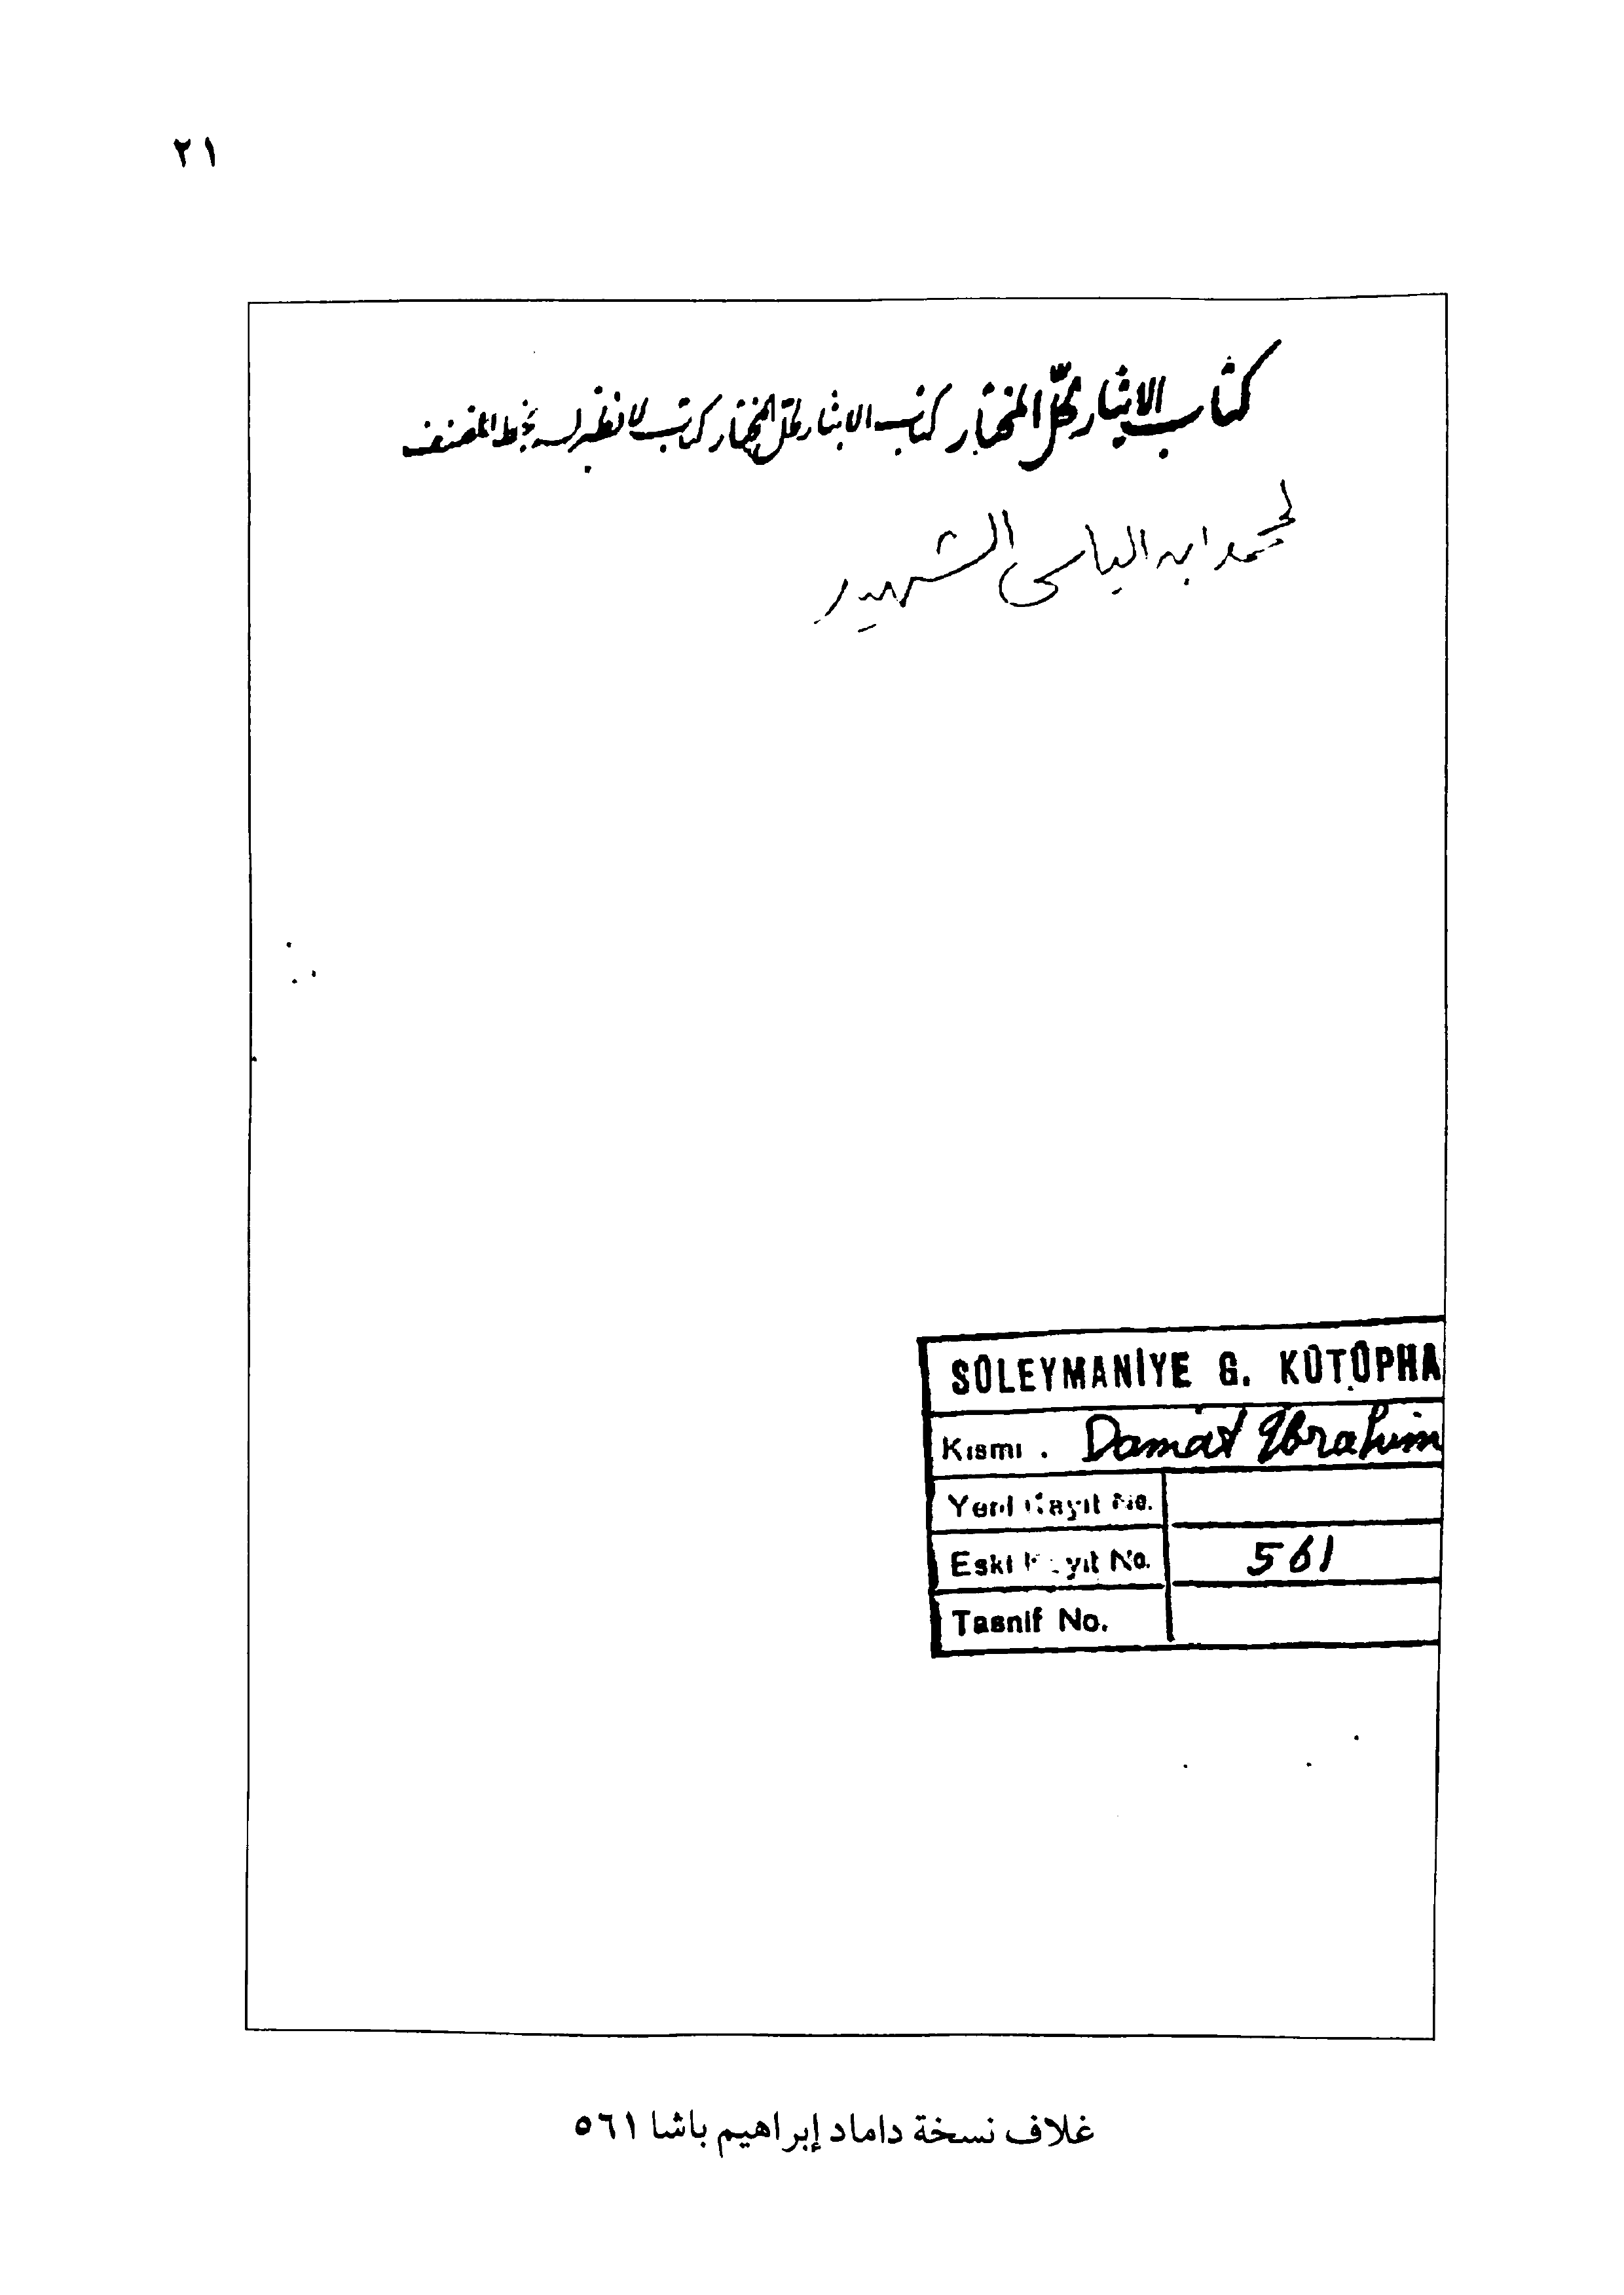 ٢١
كتاب الايثار لحلّ المختار كتاب الايثار لحل المختار كتاب لا نظير له بخط المصنف
لمحمد ابن الياس الشهير
SÜLEYMANİYE G. KÜTÜPHA
Kısmı . Damat Ibrahim
Yeni Kayıt No.
Eski Kayıt No. 561
Tasnif No.
غلاف نسخة داماد إبراهيم باشا ٥٦١